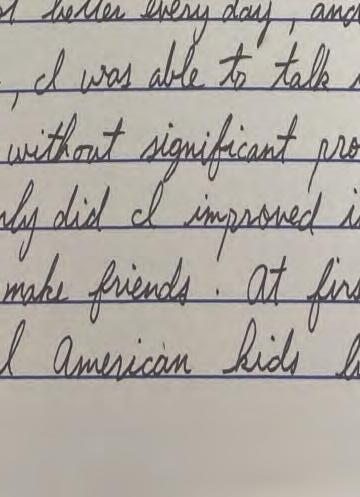 better every day, and
, I was able to talk
without significant pro
nly did I improved i
make friends. At firs
l American kids l